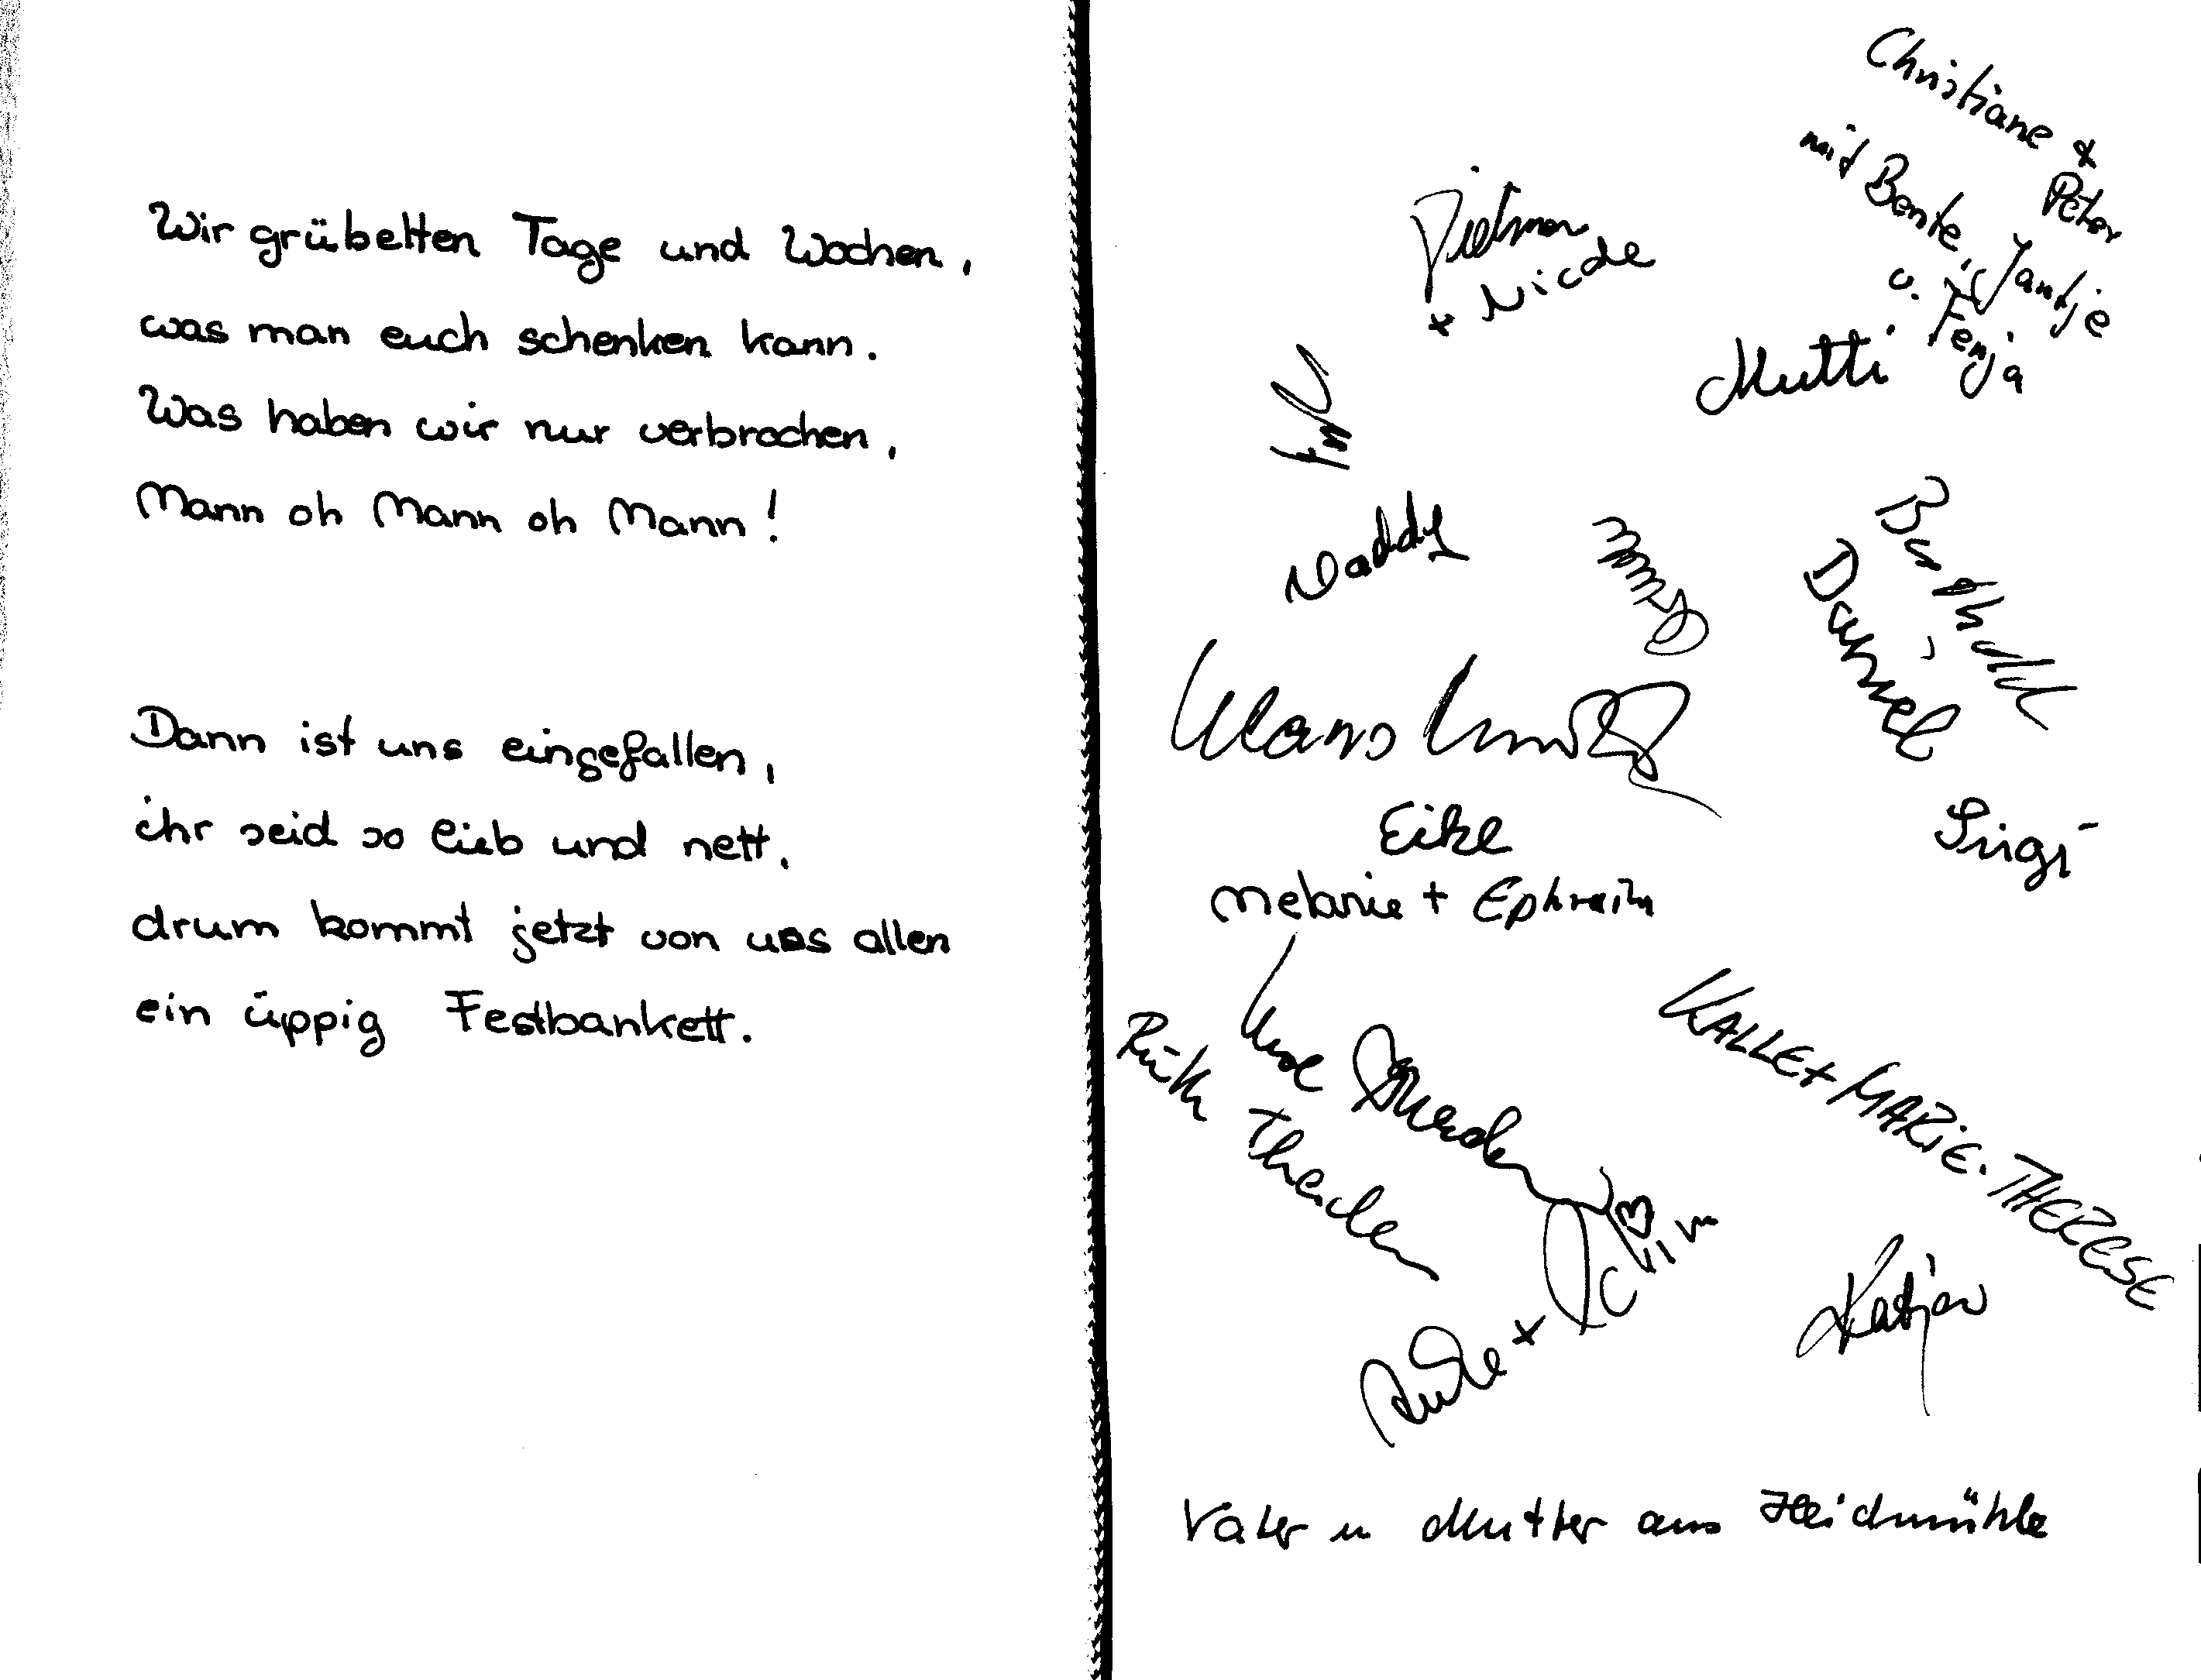 Wir grübelten Tage und Wochen,
was man euch schenken kann.
Was haben wir nur verbrochen,
Mann oh Mann oh Mann!
Dann ist uns eingefallen,
ihr seid so lieb und nett,
drum kommt jetzt von uns allen
ein üppig Festbankett.
Christiane &
Peter
mit Bente, Jantje
u. Fenja
Dietmar
+ Nicole
Mutti
Waddy
Berthold
Daniel
Klaus
Eike
Sigi
Melanie + Ephraim
KALLE + MARIE-THERESE
Ruth Theilen
Katja
Vater u Mutter aus Heidmühle